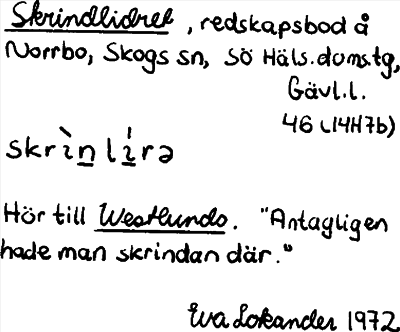 Skrindlidret, redskapsbod å
Norrbo, Skogs sn, Sö Häls.doms.tg,
Gävl.l.
46 (14H7b)
skrìn̲ lí̲rə
Hör till Westlunds. "Antagligen
hade man skrindan där."
Eva Lokander 1972